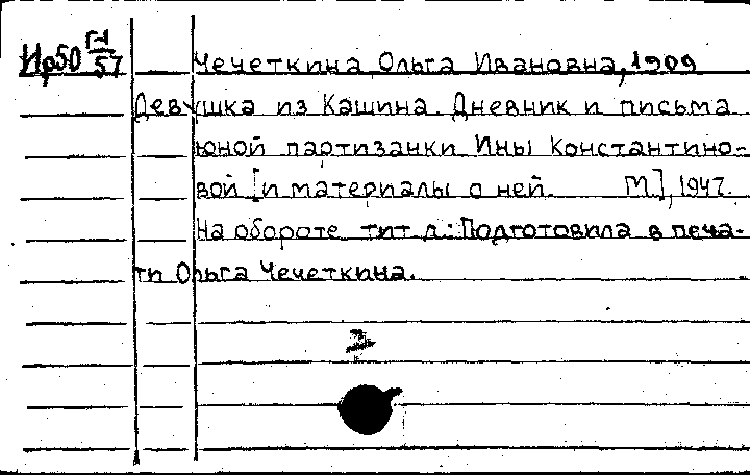 Ир50 Г-1/57
Чечеткина, Ольга Ивановна, 1909
Девушка из Кашина. Дневник и письма
юной партизанки Ины Константино-
вой [и материалы о ней. М.], 1947.
На обороте тит. л.: Подготовила в печа-
ти Ольга Чечеткина.